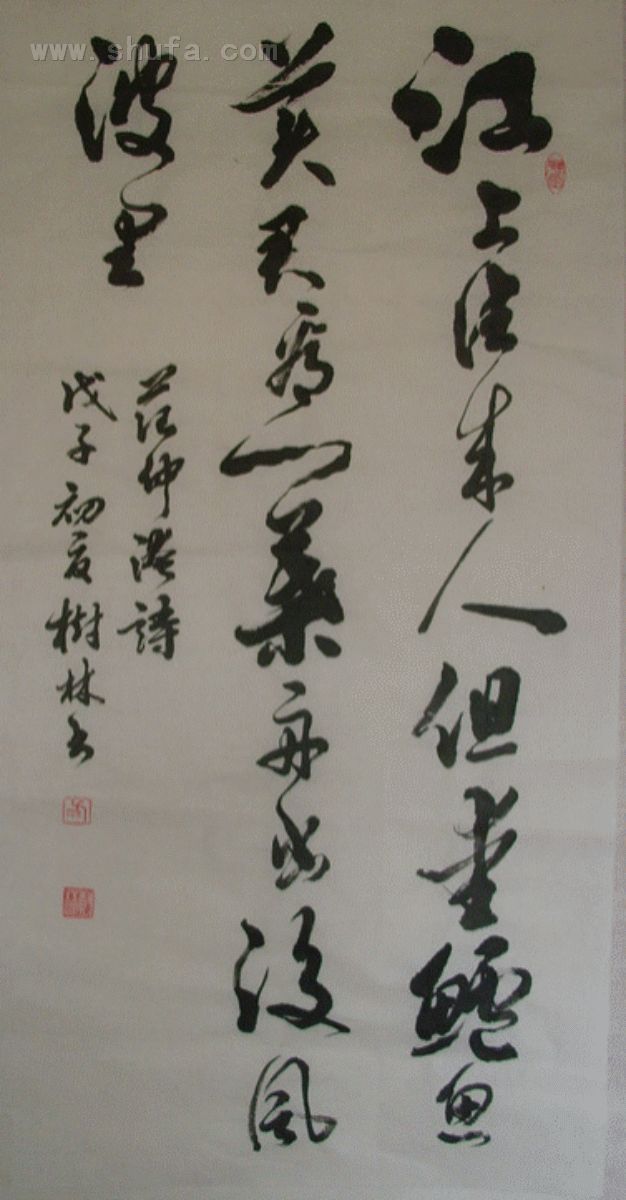 江上往来人但爱鲈鱼
美君看一葉舟出没风
波里
范仲淹詩
戊子初夏樹林书
www.shufa.com